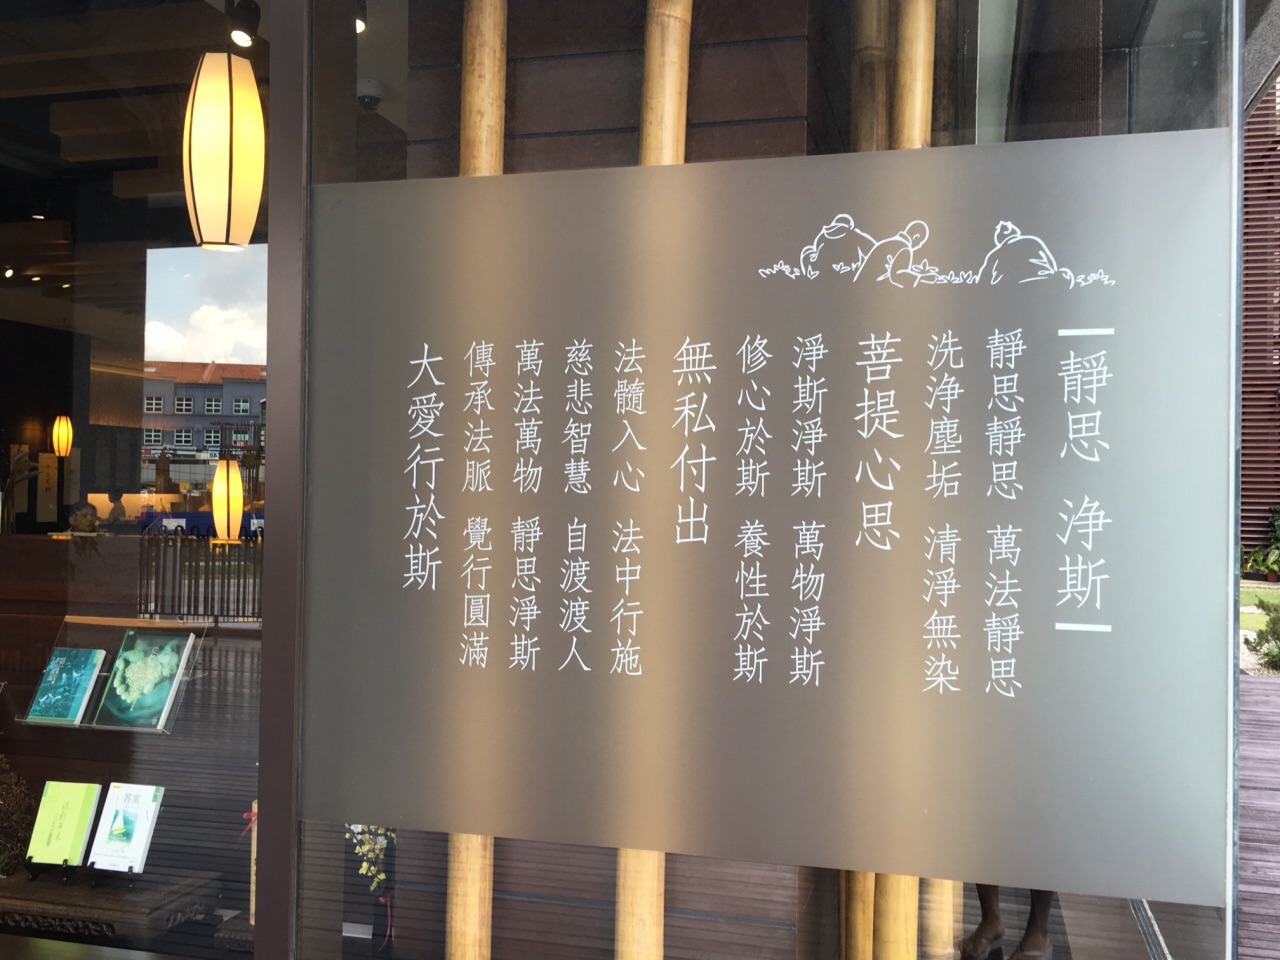 靜思 淨斯
靜思靜思 萬法靜思
洗淨塵垢 清淨無染
菩提心思
淨斯淨斯 萬物淨斯
修心於斯 養性於斯
無私付出
法髓入心 法中行施
慈悲智慧 自渡渡人
萬法萬物 靜思淨斯
傳承法脈 覺行圓滿
大愛行於斯